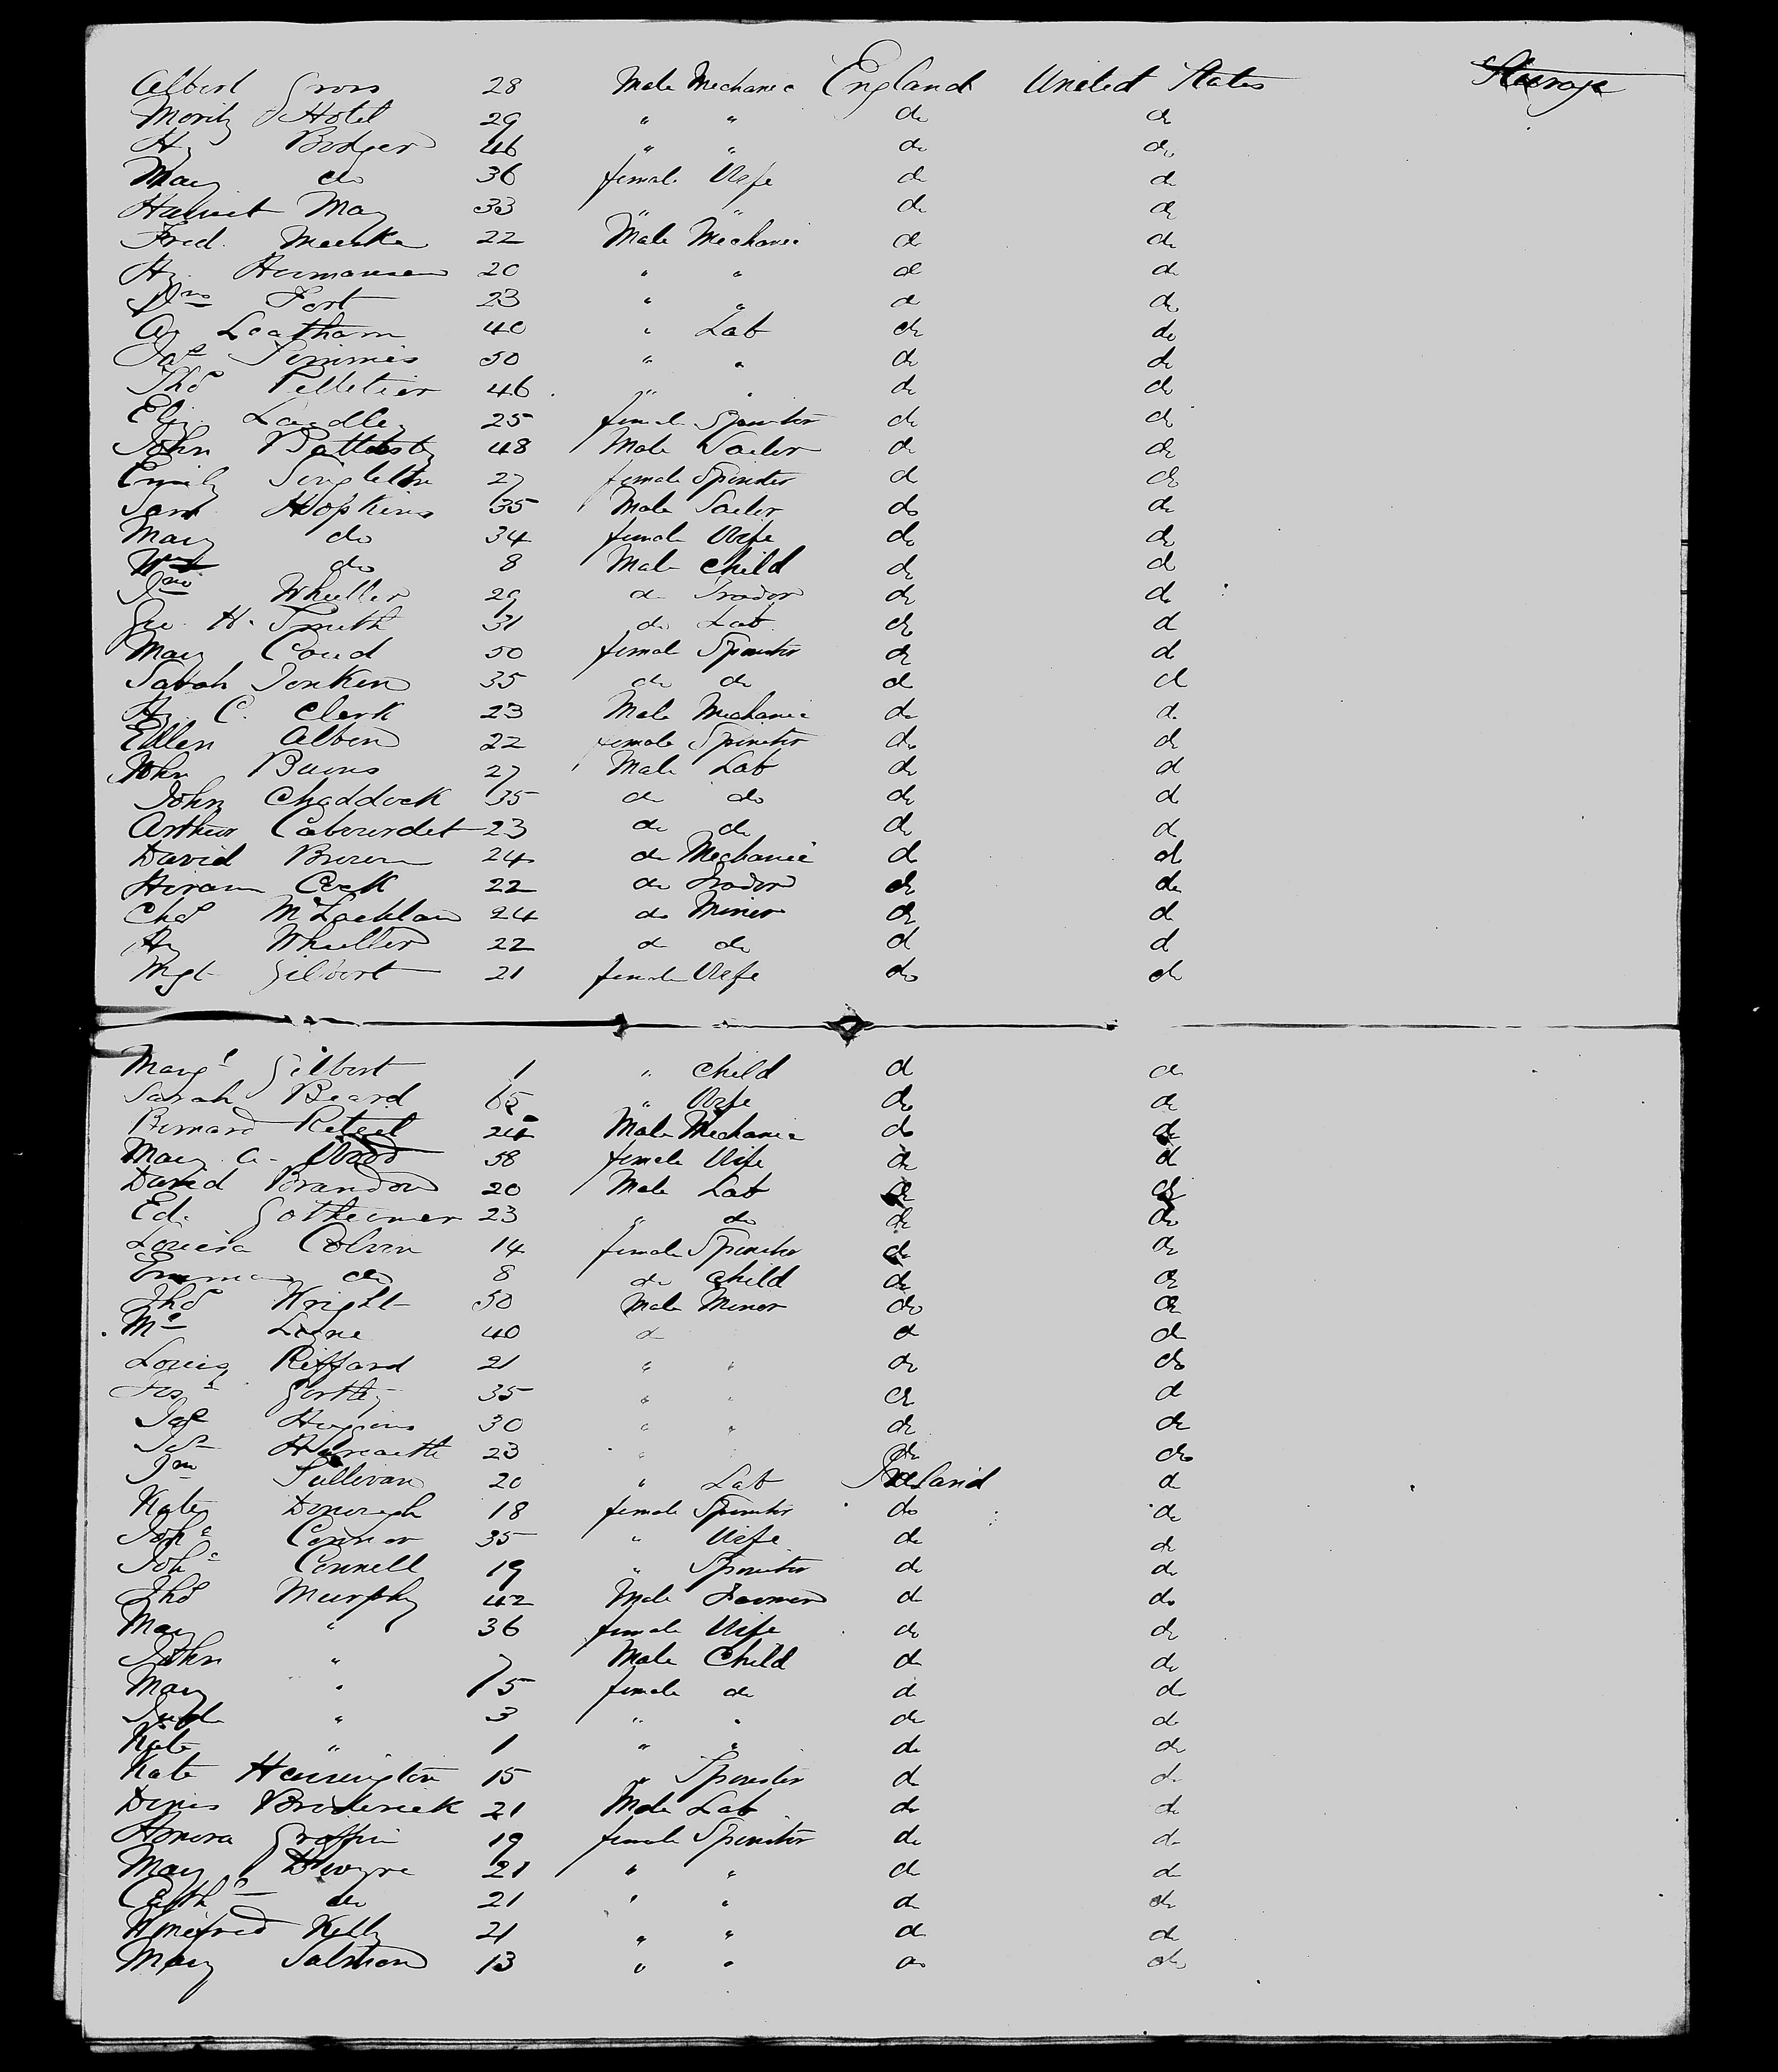 Albert Gross 28 Male Mechanic England United States Steerage
Moritz Hotel 29 " " do do
Hy Bodger 46 " " do do
Mary do 36 female Wife do do
Harriet May 33 " " do do
Fred. Meenke 22 Male Mechanic do do
Hy. Hermansen 20 " " do do
Jno Fort 23 " " do do
Leatham 40 " Lab do do
Jas Simmis 50 " " do do
Thos Pelletier 46 " " do do
Eliz. Landley 25 female Spinster do do
John Battersby 48 Male Sailor do do
Emily Singleton 27 female Spinster do do
Saml Hopkins 35 Male Sailor do do
Mary do 34 female Wife do do
Wm do 8 Male child do do
Jno Wheeller 29 do Trador do do
Geo. H. Smith 31 do Lab do do
Mary Coud 50 female Spinster do do
Sarah Jenken 35 do do do do
Hy C. Clerk 23 Male Mechanic do do
Ellen Albon 22 female Spinster do do
John Burns 27 Male Lab do do
John Chaddock 35 do do do do
Arthur Cabourdet 23 do do do do
David Brown 24 do Mechanic do do
Hiram Cock 22 do Trador do do
Chas McLachlan 24 do Miner do do
Hy Wheeller 22 do do do do
Mgt Gilbert 21 female Wife do do
Margt Gilbert 1 " child do do
Sarah Beard 65 " Wife do do
Bernard 24 Male Mechanic do do
Mary A. Wood 58 female Wife do do
David Brandon 20 Male Lab do do
Ed. Gotheimer 23 " do do do
Louisa Colvin 14 female Spinster do do
Emma do 8 do child do do
Thos Wright 50 Male Miner do do
Layne 40 do do do
Louis Riffard 21 " " do do
Gortley 35 " " do do
Jas Huggins 30 " " do do
23 " do do
Jno Sullivan 20 " Lab Ireland do
Kate Donough 18 female Spinster do do
Joha Connor 35 " Wife do do
Joha Connell 19 " Spinster do do
Thos Murphy 42 Male Farmer do do
Mary " 36 female Wife do do
John " 7 Male Child do do
Mary " 5 female do do do
" 3 " " do do
Kate " 1 " " do do
Kate Harrington 15 " Spinster do do
Denis Broderick 21 Male Lab do do
Honora Griffin 19 female Spinster do do
Mary Dwyre 21 " " do do
Cathe do 21 " " do do
Winefred Kelly 21 " " do do
Mary Salmon 13 " " do do